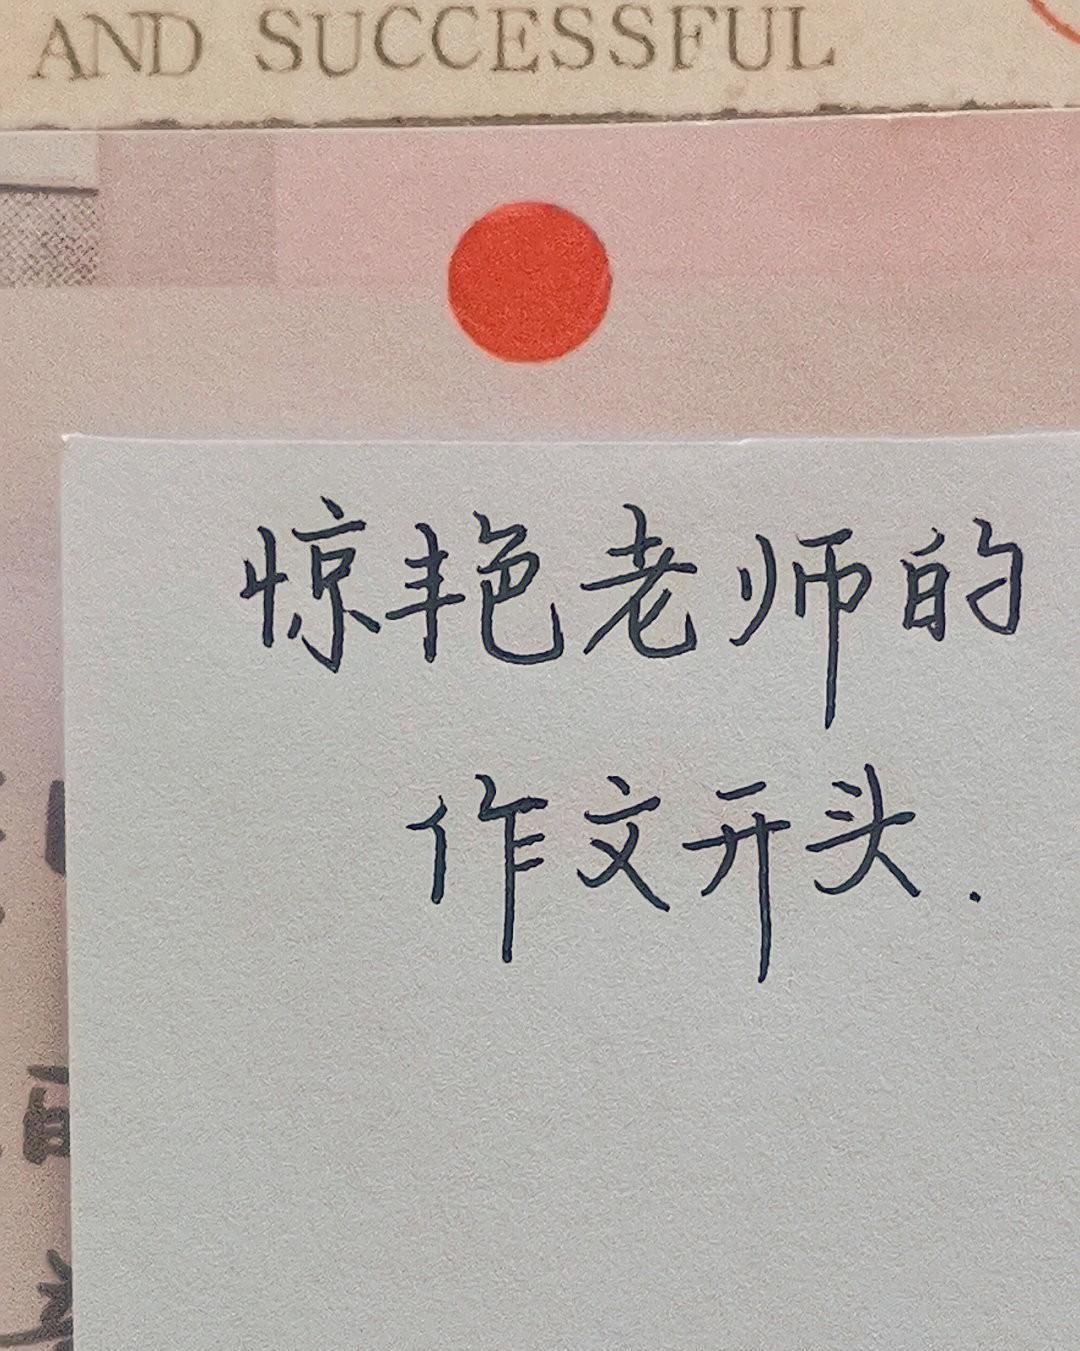 AND SUCCESSFUL
惊艳老师的
作文开头.